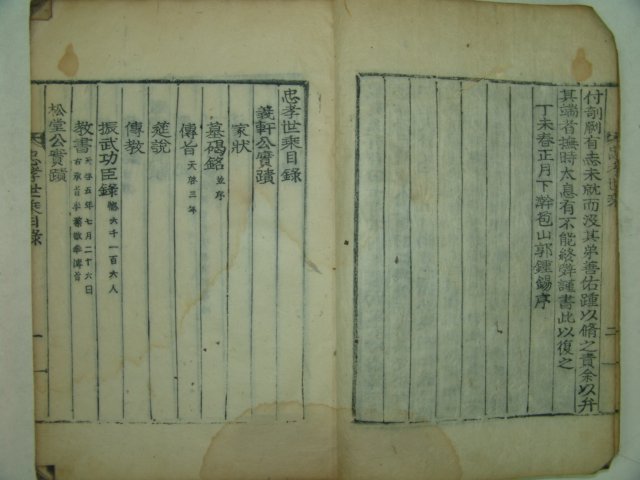 付剞劂有志未就而沒其弟善佑踵以脩之責余以弁
其端省撫時太息有不能終辭謹書此以復之
丁未春正月下澣苞山郭鍾錫序
忠孝世乘目錄
義軒公實蹟
家狀
墓碣銘 並序
傳旨 天啓三年
筵說
傳敎
振武功臣錄 六千一百六人
敎書 天啓五年七月二十六日 右承旨
松堂公實蹟
忠孝世乘目錄 一